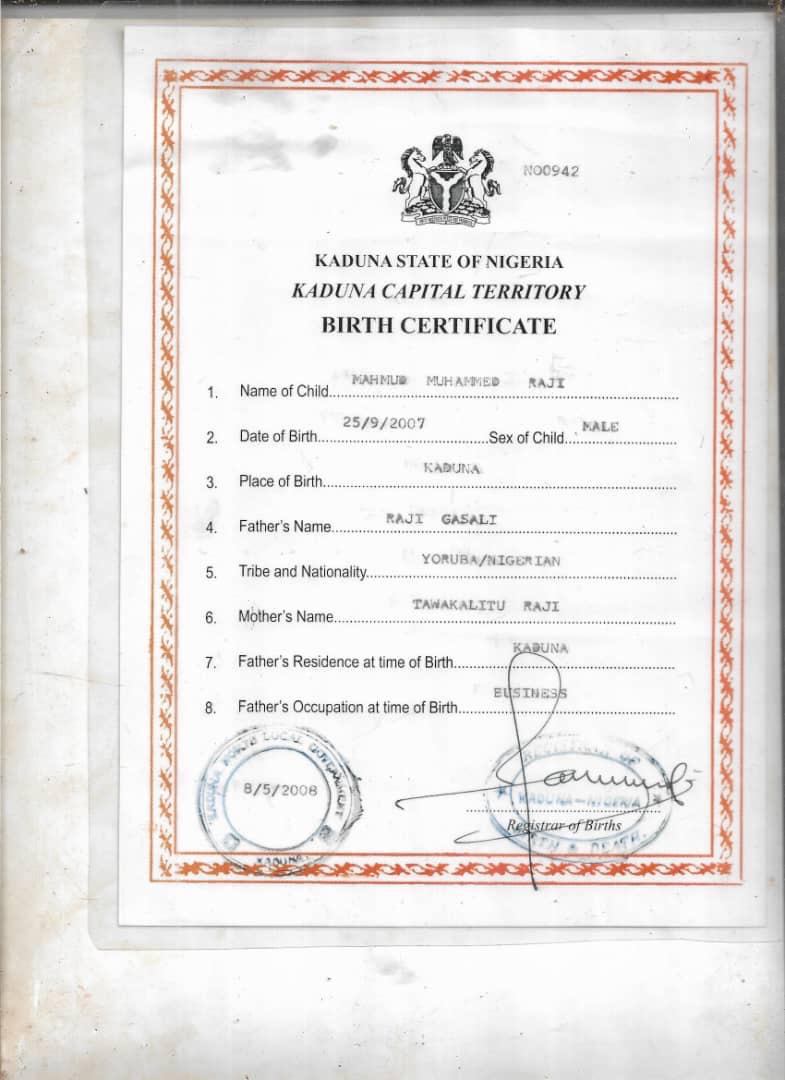 N00942
KADUNA STATE OF NIGERIA
KADUNA CAPITAL TERRITORY
BIRTH CERTIFICATE
1. Name of Child MAHMUD MUHAMMED RAJI
2. Date of Birth 25/9/2007 Sex of Child MALE
3. Place of Birth KADUNA
4. Father's Name RAJI GASALI
5. Tribe and Nationality YORUBA/NIGERIAN
6. Mother's Name TAWAKALITU RAJI
7. Father's Residence at time of Birth KADUNA
8. Father's Occupation at time of Birth BUSINESS
KADUNA LOCAL GOVERNMENT
8/5/2008
KADUNA
KADUNA-NIGERIA
Registrar of Births
DEATH